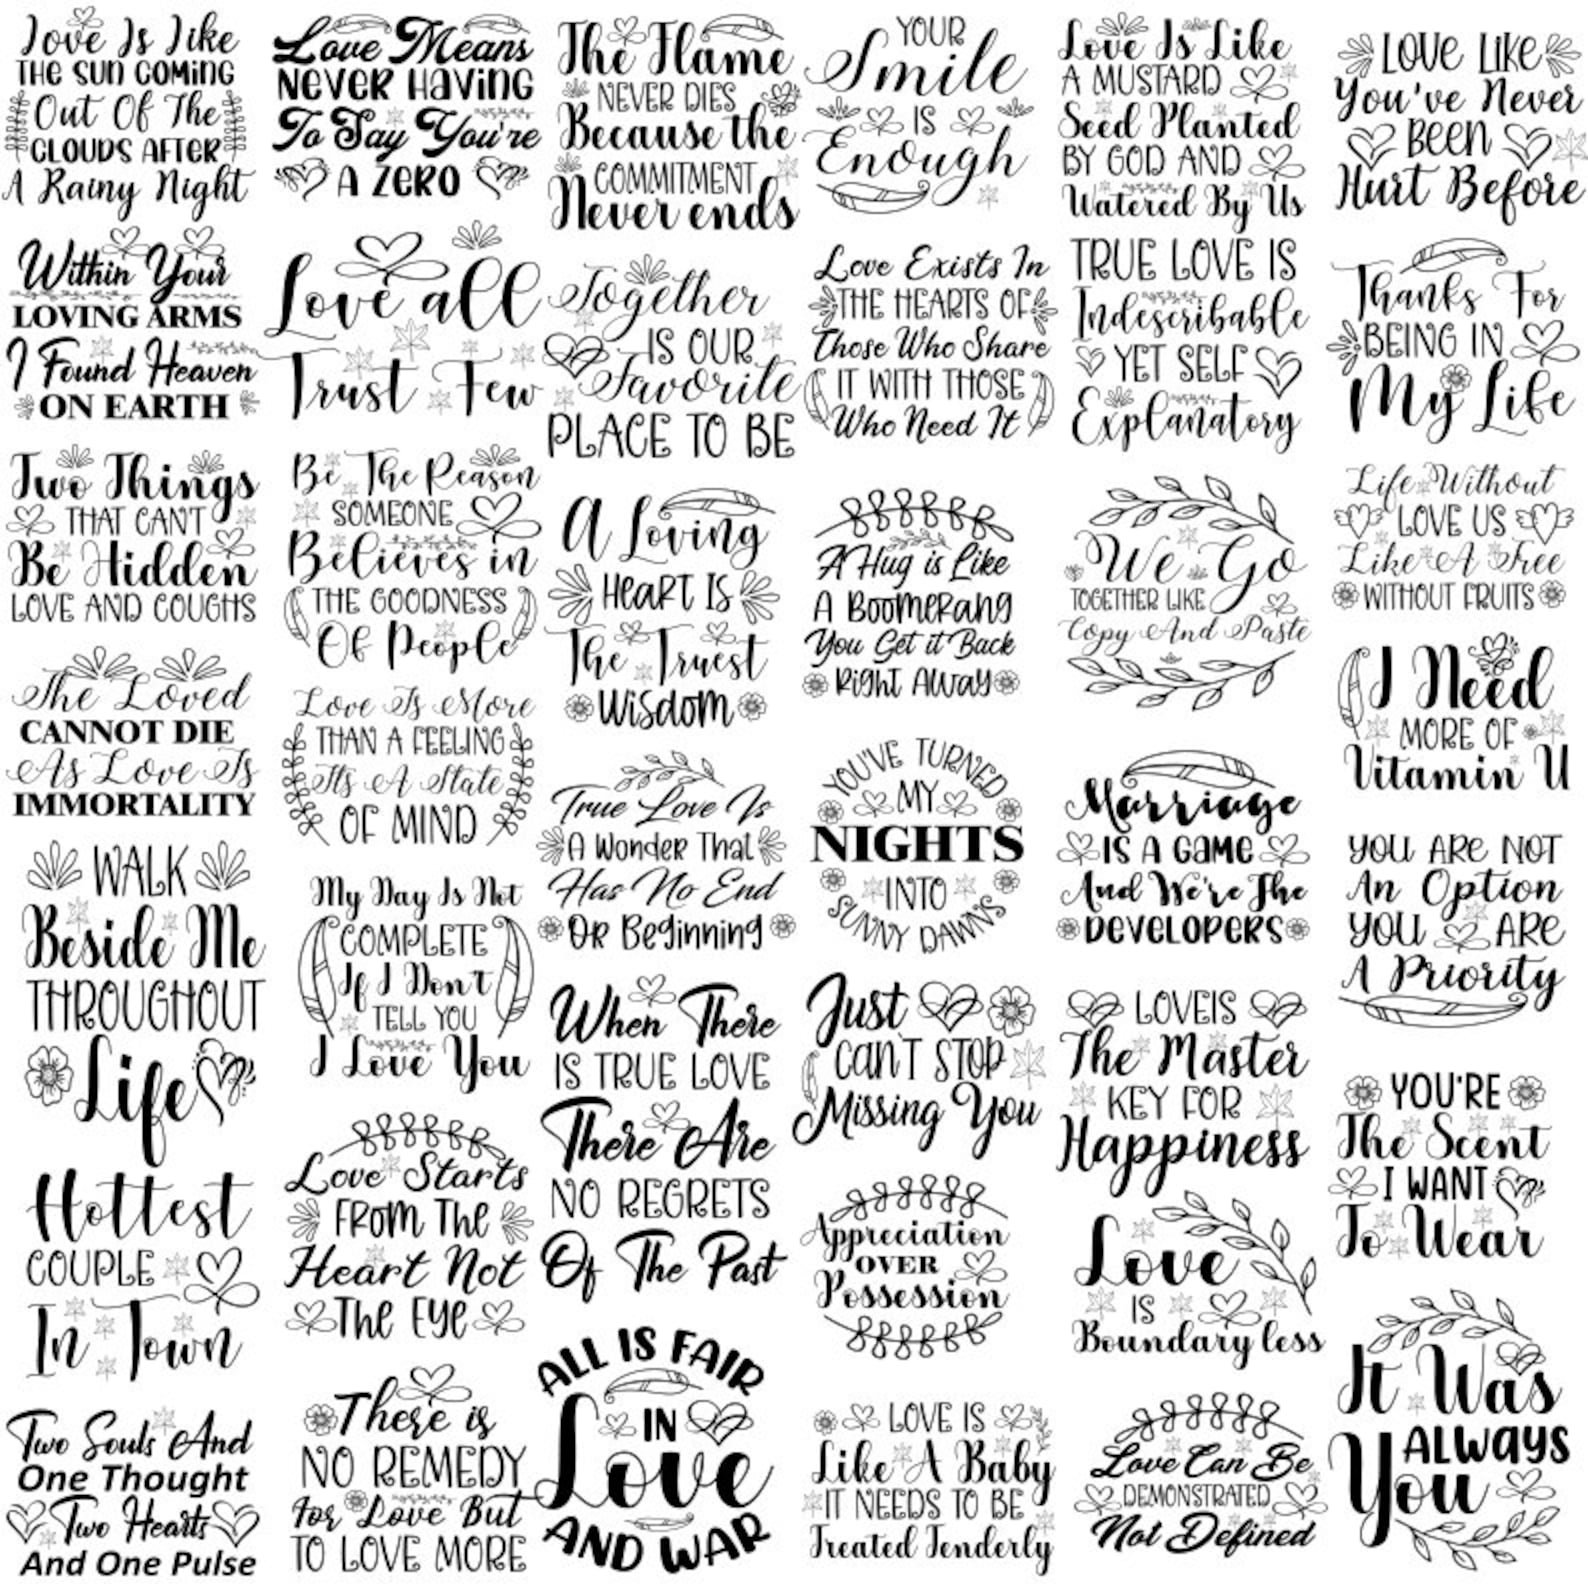 Love Is Like
THE SUN COMING
Out Of The
CLOUDS AFTER
A Rainy Night
Within Your
LOVING ARMS
I Found Heaven
ON EARTH
Two Things
THAT CAN'T
Be Hidden
LOVE AND COUGHS
The Loved
CANNOT DIE
As Love Is
IMMORTALITY
WALK
Beside Me
THROUGHOUT
Life
Hottest
COUPLE
In Town
Two Souls And
One Thought
Two Hearts
And One Pulse
Love Means
NEVER HAVING
To Say You're
A ZERO
Love all
Trust Few
Be The Reason
SOMEONE
Believes in
THE GOODNESS
Of People
Love Is More
THAN A FEELING
Its A State
OF MIND
My Day Is Not
COMPLETE
If I Don't
TELL YOU
I Love You
Love Starts
FROM THE
Heart Not
THE EYE
There is
NO REMEDY
For Love But
TO LOVE MORE
The Flame
NEVER DIES
Because the
COMMITMENT
Never ends
Together
IS OUR
Favorite
PLACE TO BE
A Loving
HEART IS
The Truest
WISDOM
True Love Is
A Wonder That
Has No End
OR Beginning
When There
IS TRUE LOVE
There Are
NO REGRETS
Of The Past
ALL IS FAIR
IN
Love
AND WAR
YOUR
Smile
IS
Enough
Love Exists In
THE HEARTS OF
Those Who Share
IT WITH THOSE
Who Need It
A Hug is Like
A BOOMERANG
You Get it Back
Right Away
YOU'VE TURNED
MY
NIGHTS
INTO
SUNNY DAWNS
Just
CAN'T STOP
Missing You
Appreciation
OVER
Possession
LOVE IS
Like A Baby
IT NEEDS TO BE
Treated Tenderly
Love Is Like
A MUSTARD
Seed Planted
BY GOD AND
Watered By Us
TRUE LOVE IS
Indescribable
YET SELF
Explanatory
We Go
TOGETHER LIKE
Copy And Paste
Marriage
IS A GAME
And We're The
DEVELOPERS
LOVEIS
The Master
KEY FOR
Happiness
Love
IS
Boundary less
Love Can Be
DEMONSTRATED
Not Defined
LOVE LIKE
You've Never
BEEN
Hurt Before
Thanks For
BEING IN
My Life
Life Without
LOVE US
Like A Tree
WITHOUT FRUITS
I Need
MORE OF
Vitamin U
YOU ARE NOT
An Option
YOU ARE
A Priority
YOU'RE
The Scent
I WANT
To Wear
It Was
ALWAYS
You